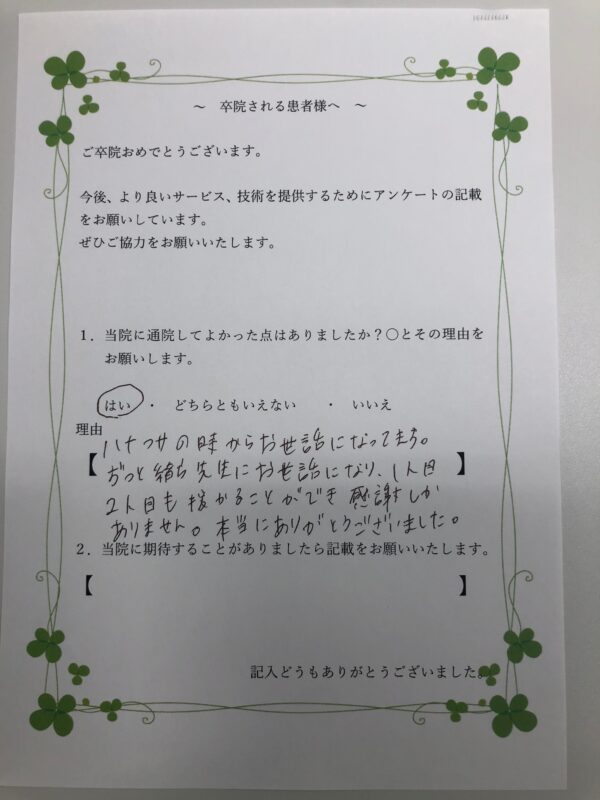 ～ 卒院される患者様へ ～
ご卒院おめでとうございます。
今後、より良いサービス、技術を提供するためにアンケートの記載
をお願いしています。
ぜひご協力をお願いいたします。
1．当院に通院してよかった点はありましたか？〇とその理由を
お願いします。
はい ・ どちらともいえない ・ いいえ
理由
の時からお世話になってます。
【ずっと緒方先生にお世話になり、1人目】
2人目も授かることができ感謝しか
ありません。本当にありがとうございました。
2．当院に期待することがありましたら記載をお願いいたします。
【 】
記入どうもありがとうございました。